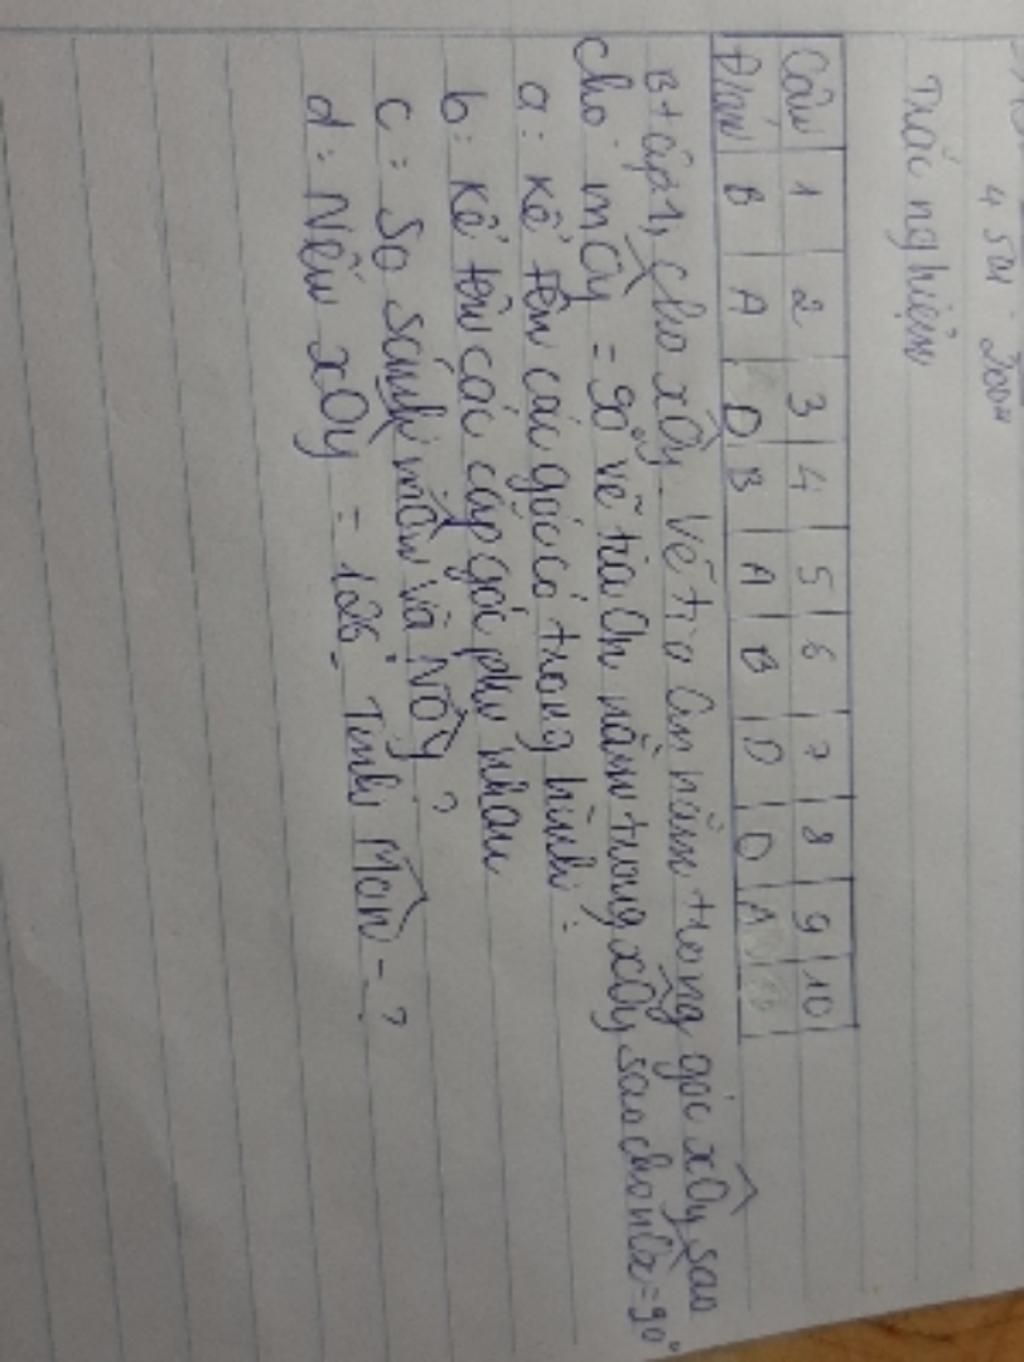 4 sai
Trắc nghiệm
Câu 1 2 3 4 5 6 7 8 9 10
Đ/án B A D B A B D D A
Btập1, cho xOy. Vẽ tia On nằm trong góc xOy sao
cho mOy = 90° vẽ tia On nằm trong xOy sao cho nOx = 90°
a: kể tên các góc có trong hình:
b: kể tên các cặp góc phụ nhau
c: So sánh mOn và nOy ?
d: Nếu xOy = 126°. Tính MOn = ?